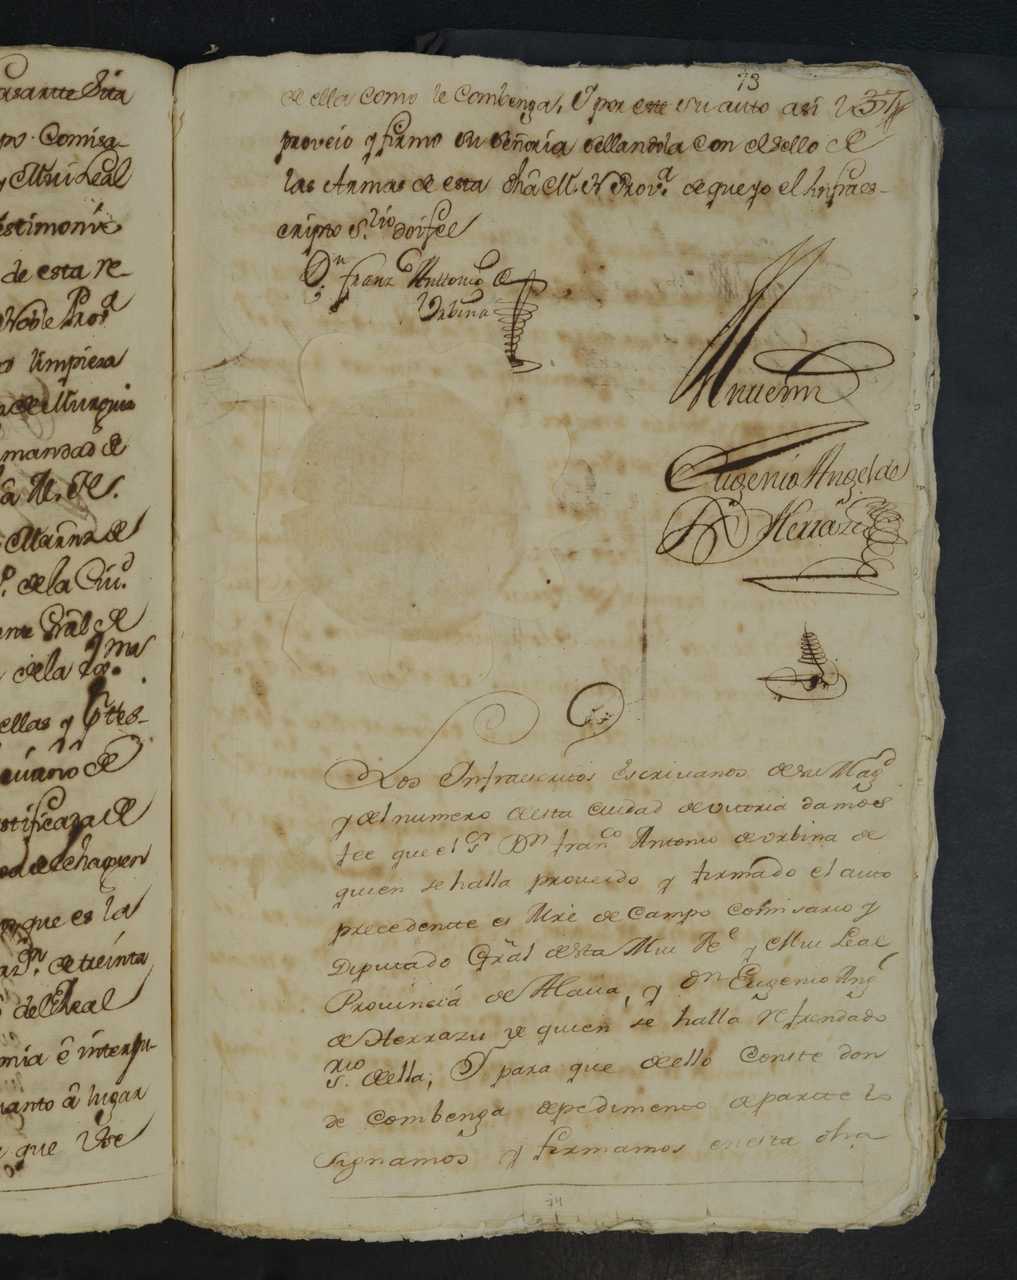 pasante Dita
po. Comisa-
y Mui Leal
testimonio
de esta re-
Noble Prov.ª
limpieza
de Murguia
mandad de
â M. N.
Martnz de
de la Ciu.d
Grâl de
de la
ellas y
de
de
de
que es la
de treinta
del Real
mia ê interpu-
quanto â lugar
que
73
37
de ella como le Combenga, Y por este su auto asi lo
proveio y firmo su señoria sellandola con el sello de
las Armas de esta dhâ M. N. Prov.ª de que yo el Infraes-
cripto S.rio doi fee
D.n Franz.co Antonio de
Urbina
Antemi
Eugenio Angel de
Herrazu
Los Infraescritos Escrivanos de su Mag.d
y del numero desta ciudad de vitoria damos
fee que el S.r D.n Fran.co Antonio de Urbina de
quien se halla proveido y firmado el auto
precedente es Mrê de Campo Comisario y
Diputado Grâl desta Mui Ne y Mui Leal
Provincia de Alava, y Dn Eugenio Ang.l
de Herrazu de quien se halla Refrendado
S.rio della, Y para que dello Conste don
de combenga de pedimento de parte lo
signamos y firmamos en esta dha
74